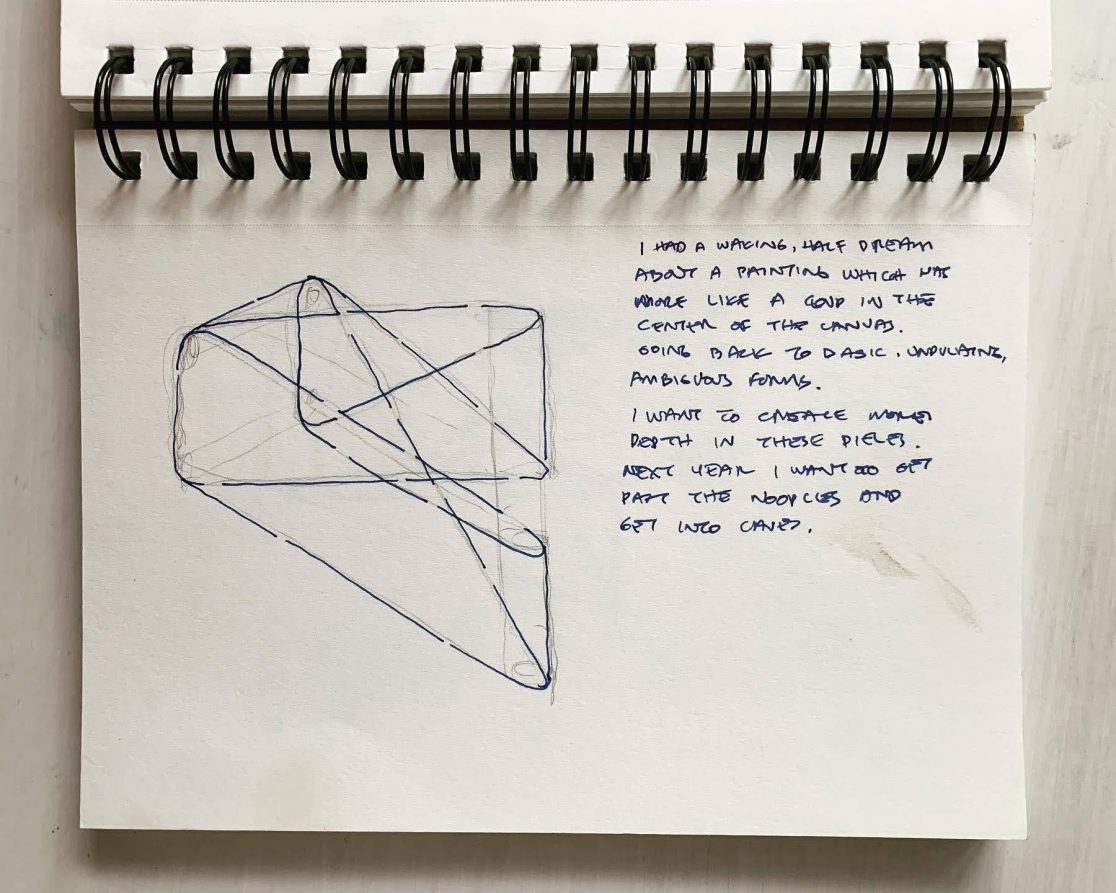 I HAD A WAKING, HALF DREAM
ABOUT A PAINTING WHICH WAS
MORE LIKE A IN THE
CENTER OF THE CANVAS.
GOING BACK TO BASIC, UNDULATING,
AMBIGUOUS FORMS.
I WANT TO CREATE MORE
DEPTH IN THESE PIECES.
NEXT YEAR I WANT TO GET
PAST THE NOODLES AND
GET INTO .